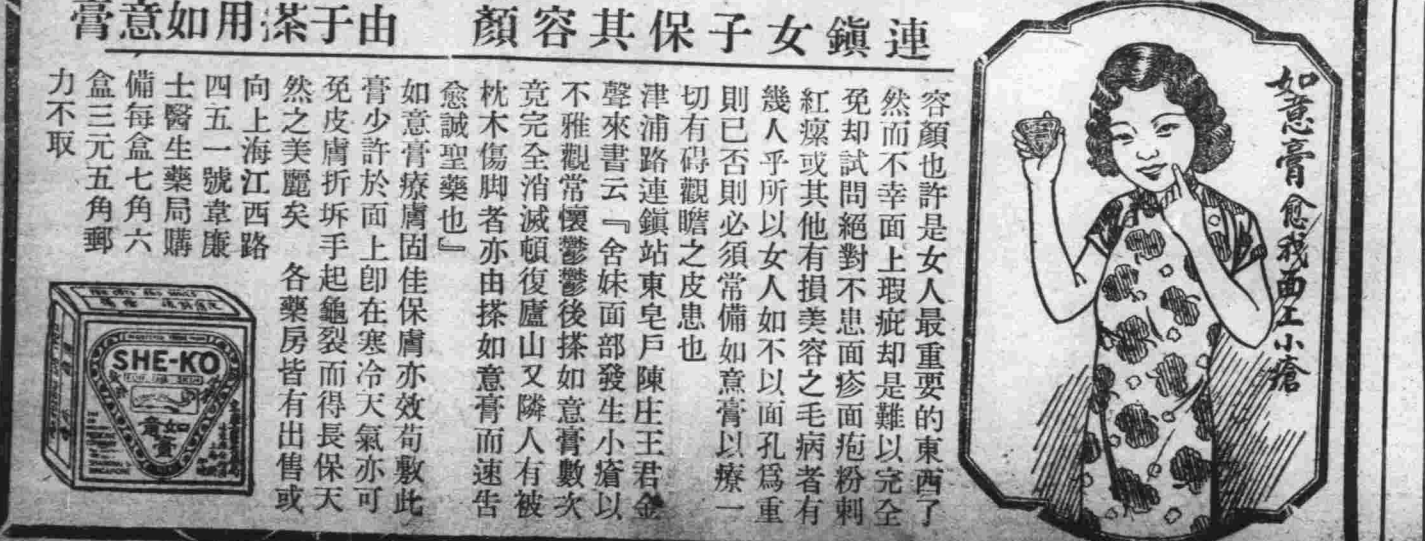 連鎮女子保其容顏　由于搽用如意膏
如意膏愈我面上小瘡
容顏也許是女人最重要的東西了
然而不幸面上瑕疵却是難以完全
免却試問絕對不患面疹面疱粉刺
紅瘰或其他有損美容之毛病者有
幾人乎所以女人如不以面孔爲重
則已否則必須常備如意膏以療一
切有碍觀瞻之皮患也
津浦路連鎮站東皂戶陳庄王君金
聲來書云『舍妹面部發生小瘡以
不雅觀常懷鬱鬱後搽如意膏數次
竟完全消滅頓復廬山又隣人有被
枕木傷脚者亦由搽如意膏而速告
愈誠聖藥也』
如意膏療膚固佳保膚亦效苟敷此
膏少許於面上卽在寒冷天氣亦可
免皮膚折坼手起龜裂而得長保天
然之美麗矣　各藥房皆有出售或
向上海江西路
四五一號韋廉
士醫生藥局購
備每盒七角六
盒三元五角郵
力不取
SHE-KO
FOR THE SKIN
如意膏